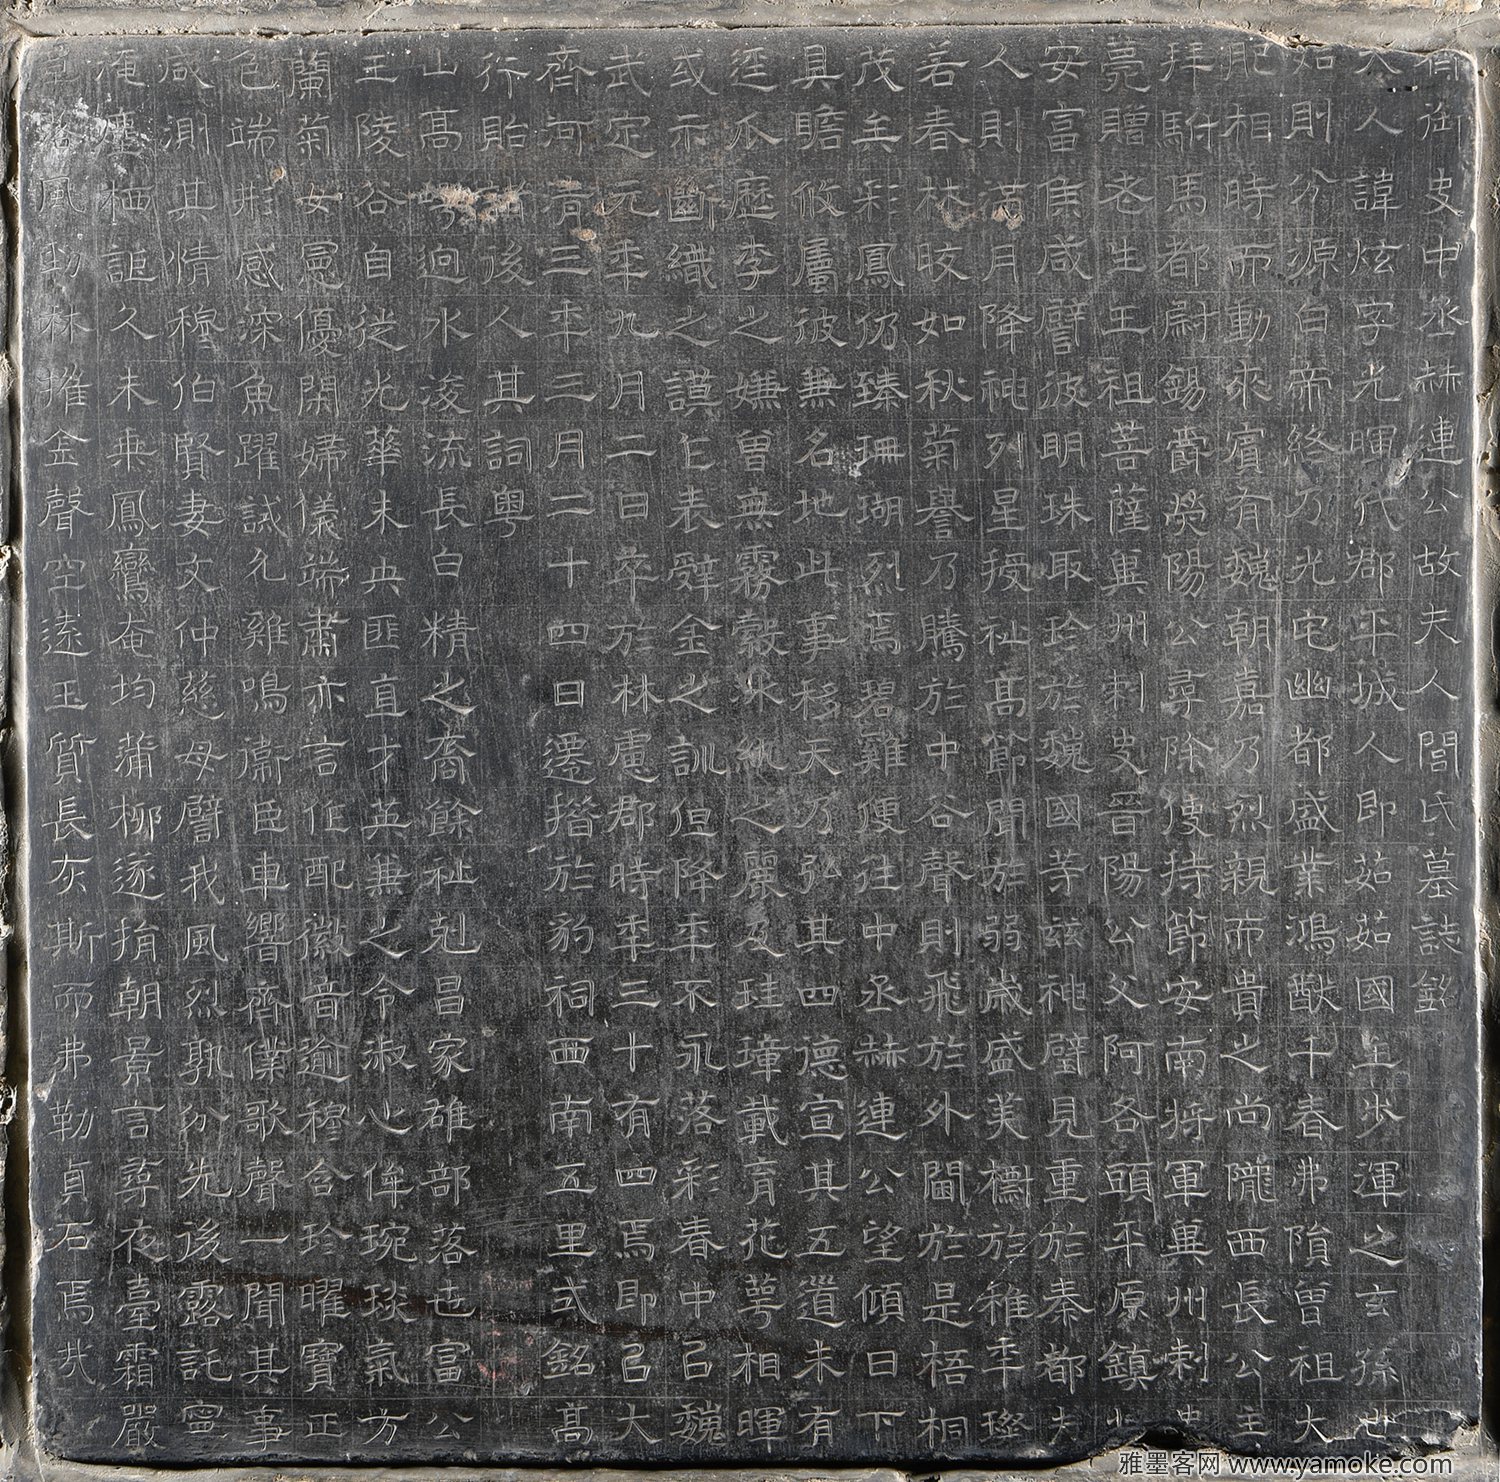 齊御史中丞赫連公故夫人閭氏墓誌銘
夫人諱炫字光暉代郡平城人即茹茹國主步渾之玄孫也
如則分源白帝終乃光宅幽都盛業鴻猷千春弗隕曾祖大
肥相時而動來賓有魏朝嘉乃烈親而貴之尚隴西長公主
拜駙馬都尉錫爵滎陽公尋除使持節安南將軍兾州刺史
薨贈老生王祖菩薩兾州刺史晉陽公父阿各頭平原鎮
安富侯咸譬彼明珠取珍於魏國等兹祧璧見重於秦都夫
人則滿月降神列星授祉高節聞於弱歲盛美檦於稚年璨
若春林晈如秋菊譽乃騰於中谷聲則飛於外閫於是梧桐
茂矣彩鳳仍臻珊瑚烈焉碧雞便往中丞赫連公望傾日下
具瞻攸屬彼無名地此事移天乃弘其四德宣其五道未有
逕瓜歷李之嫌曾無霧縠冰紈之麗及珪璋載育花萼相暉
或示斷織之謨乍表辤金之訓但降年不永落彩春中以魏
武定元年九月二日卒於林慮郡時年三十有四焉即以大
齊河清三年三月二十四日遷措於豹祠西南五里式銘高
行貽後人其詞粵
山高崿迥水浚流長白精之裔餘祉剋昌家雄部落世富公
王陵谷自從光華未央匪直才英兼之令淑心侔琬琰氣方
蘭菊女冕優閑婦儀端肅亦言作配徽音逾穆含珍曜寶正
色端形感深魚躍誠允雞鳴衞臣車響齊僕歌聲一聞其事
咸測其情穆伯賢妻文仲慈母譬我風烈孰分先後露託寧
淹塵栖詎久未乘鳳鸞奄均蒲柳遂捐朝景言尋夜臺霜嚴
落風動林摧金聲空遠玉質長灰斯而弗勒貞石焉哉
雅墨客网 www.yamoke.com